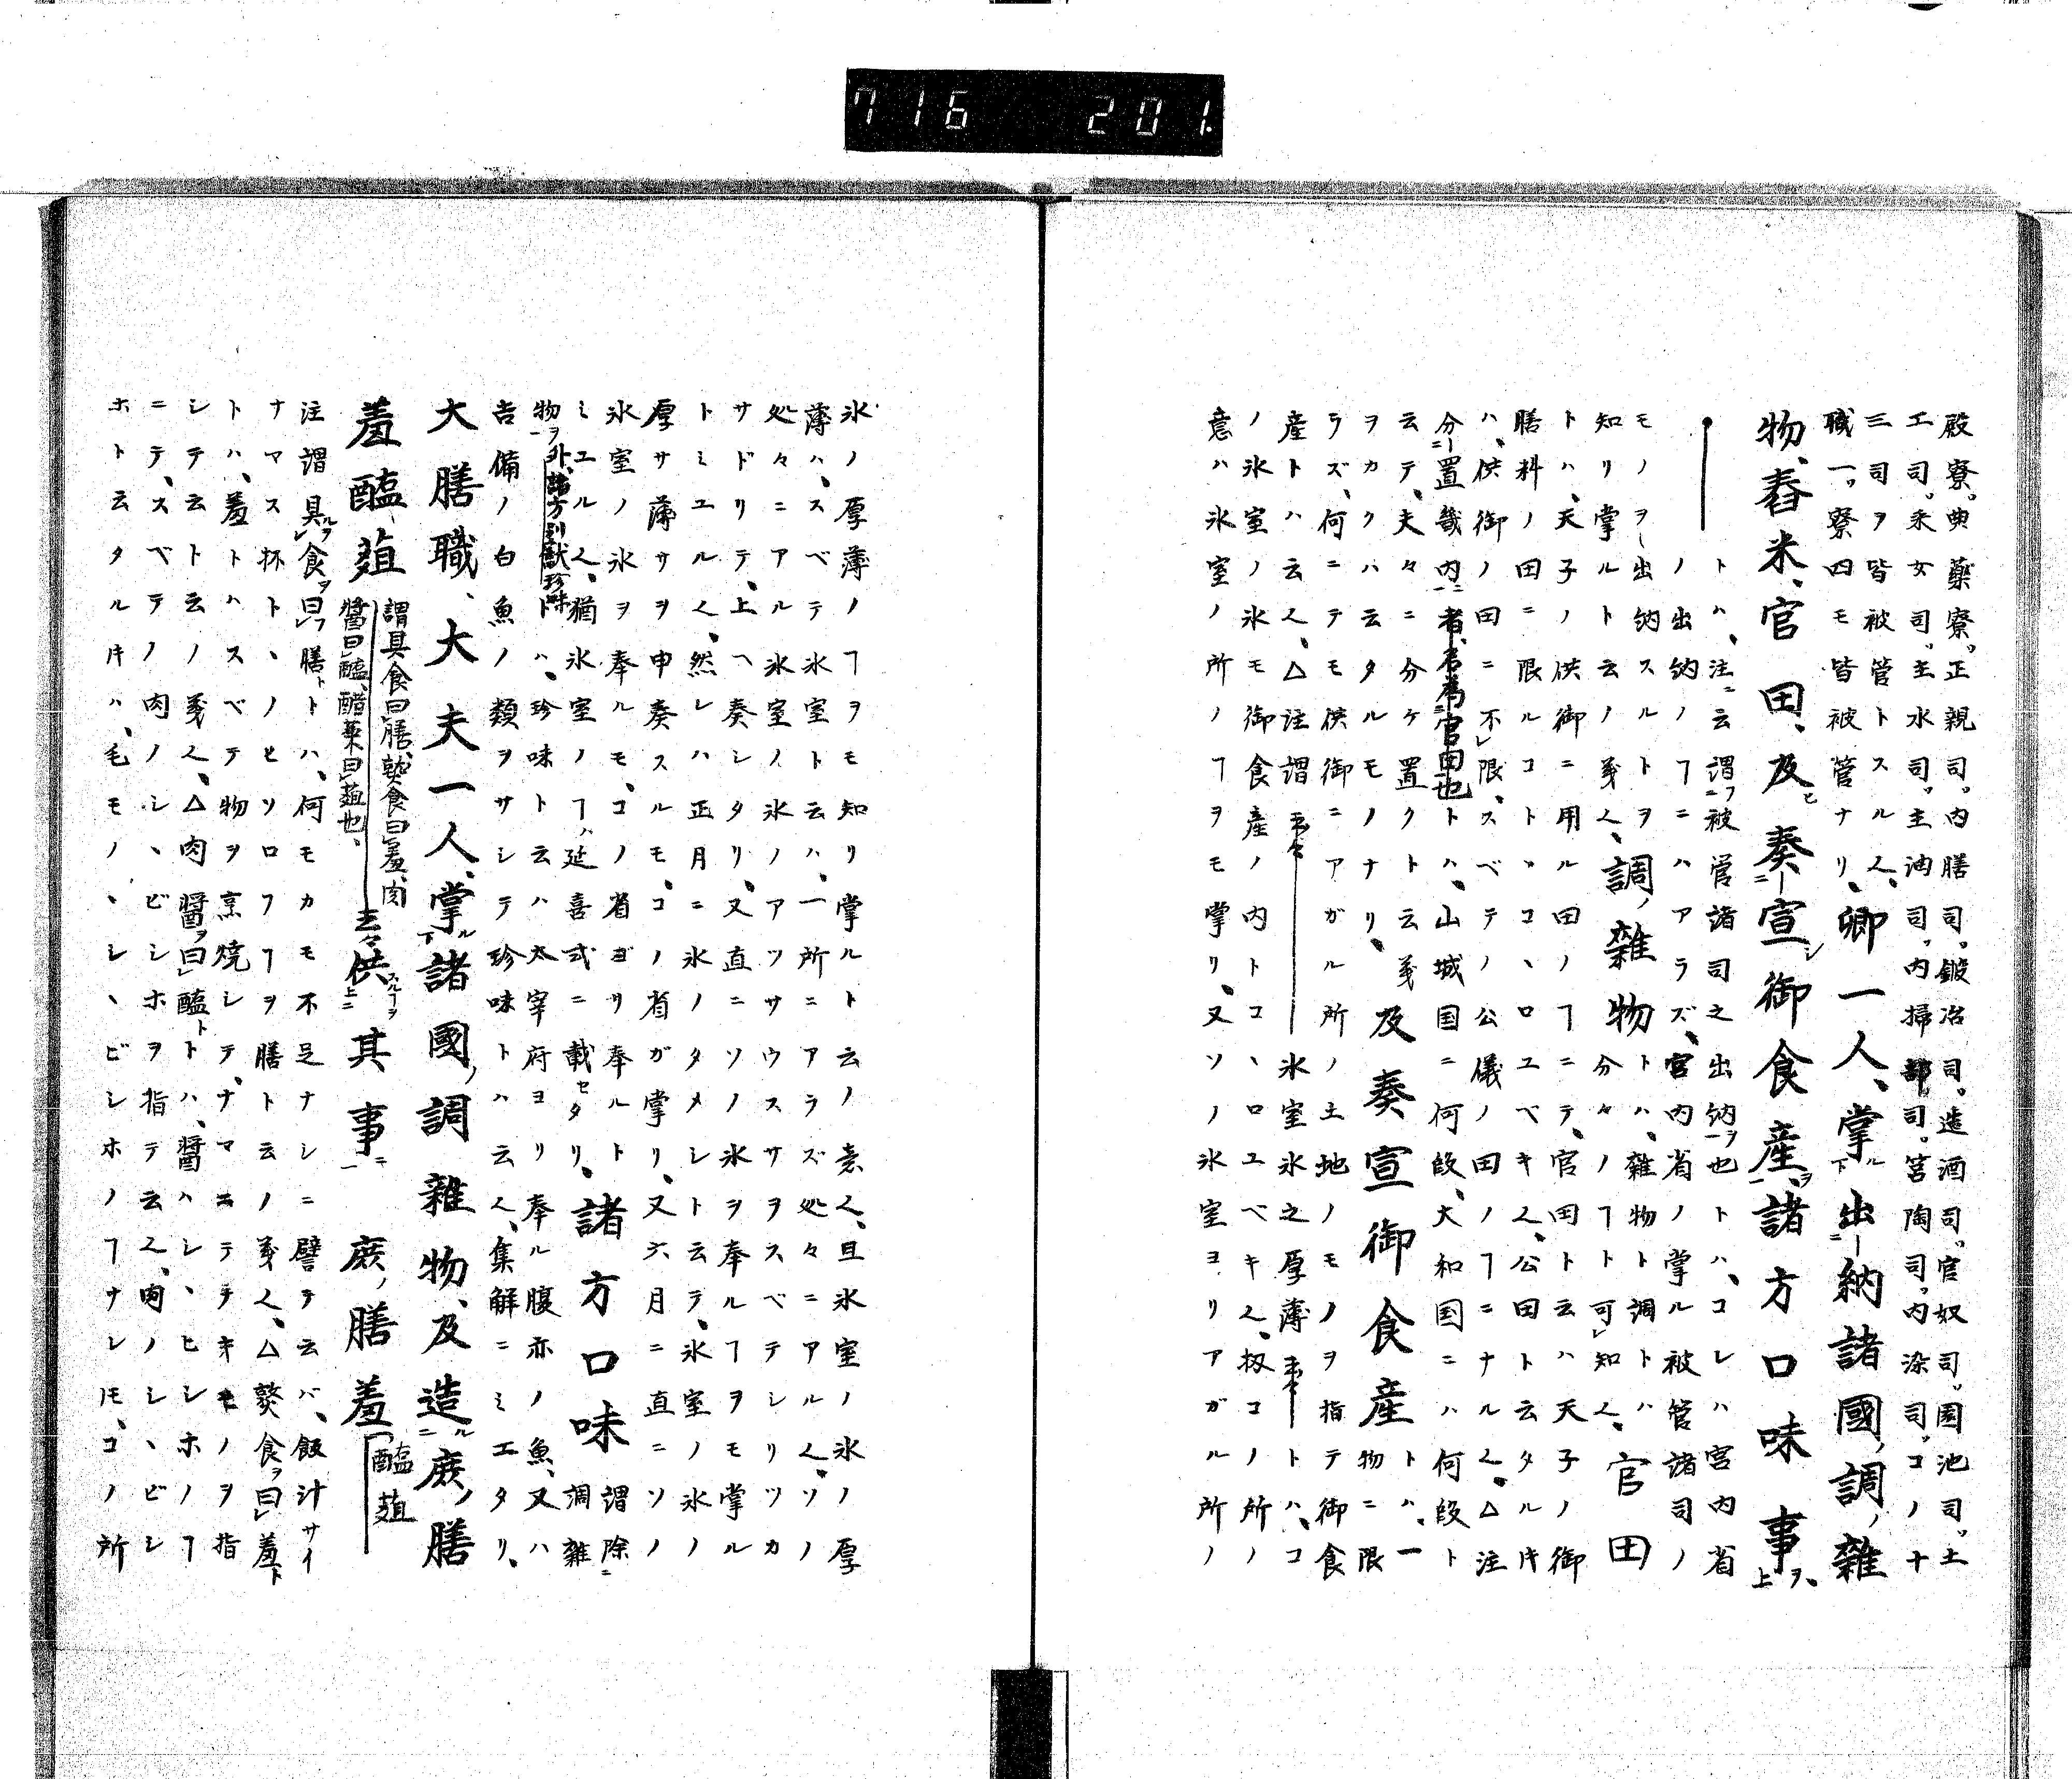 716 201.
殿寮。典藥寮。正親司。内膳司。鍛冶司。造酒司。官奴司。園池司。土
工司。采女司。主水司。主油司。内掃部司。筥陶司。内染司。コノ十
三司ヲ皆被管トスル也、
職一。寮四モ皆被管ナリ、卿一人、掌ル下出二納諸國ノ調ノ雜
物、舂米、官田、及ヒ奏二宣シ御食産ヲ一、諸方口味事ヲ上、
トハ、注ニ云謂フ被管諸司之出納ヲ也トハ、コレハ宮内省
ノ出納ノヿニハアラズ、宮内省ノ掌ル被管諸司ノ
モノヲ出納スルトヲ 調ノ雜物 トハ、雜物ト調トハ
知リ掌ルト云ノ義也、 分々ノヿト可レ知也、 官田
トハ、天子ノ供御ニ用ル田ノヿニテ、官田ト云ハ天子ノ御
膳料ノ田ニ限ルコトヽコヽロユベキ也、公田ト云タル片
ハ、供御ノ田ニ不レ限、スベテノ公儀ノ田ノヿニナル也、△注
分二置畿内一者、名爲二官田一也トハ、山城国ニ何段、大和国ニハ何段ト
云テ、夫々ニ分ケ置クト云義 及奏宣御食産 トハ、一
ヲカクハ云タルモノナリ、 物ニ限
ラズ、何ニテモ供御ニアガル所ノ土地ノモノヲ指テ御食
産トハ云也、△注謂 云々 氷室氷之厚薄 云々 トハ、コ
ノ氷室ノ氷モ御食産ノ内トコヽロユベキ也、扨コノ所ノ
意ハ氷室ノ所ノヿヲモ掌リ、又ソノ氷室ヨリアガル所ノ
氷ノ厚薄ノヿヲモ知リ掌ルト云ノ意也、旦氷室ノ氷ノ厚
薄ハ、スベテ氷室ト云ハ、一所ニアラズ処々ニアル也、ソノ
処々ニアル氷室ノ氷ノアツサウスサヲスベテシリツカ
サドリテ、上ヘ奏シタリ、又直ニソノ氷ヲ奉ルヿヲモ掌ル
トミユル也、然レハ正月ニ氷ノタメシト云テ、氷室ノ氷ノ
厚サ薄サヲ申奏スルモ、コノ省ガ掌リ、又六月ニ直ニソノ
氷室ノ氷ヲ奉ルモ、コノ省ヨリ奉ルト 諸方口味 謂除ニ
ミエル也、猶氷室ノヿハ延喜式ニ載セタリ、 調雜
物ヲ一外、諸方別獻珍味トハ、珍味ト云ハ太宰府ヨリ奉ル腹赤ノ魚、又ハ
吉備ノ白魚ノ類ヲサシテ珍味トハ云也、集解ニミエタリ、
大膳職、大夫一人、掌ル下諸國ノ調雜物、及造ル二庶ノ膳
羞 醢 葅 謂具食曰膳、熬食曰羞、肉醬曰醢、醋菜曰葅也、 云々 供スルヿヲ上ニ其事一ニ 庶ノ膳羞 醢 葅
注謂具ルヲレ食ヲ曰フレ膳トトハ、何モカモ不足ナシニ譬テ云バ、飯汁サイ
ナマス抔トヽノヒソロフヿヲ膳ト云ノ義也、△熬食ヲ曰レ羞ト
トハ、羞トハスベテ物ヲ烹焼シテ、ナマニテナキモノヲ指
シテ云ト云ノ義也、△肉醬ヲ曰レ醢トトハ、醬ハシヽヒシホノヿ
ニテ、スベテノ肉ノシヽビシホヲ指テ云也、肉ノシヽビシ
ホト云タル片ハ、毛モノヽシヽビシホノヿナレ𪜈、コノ所